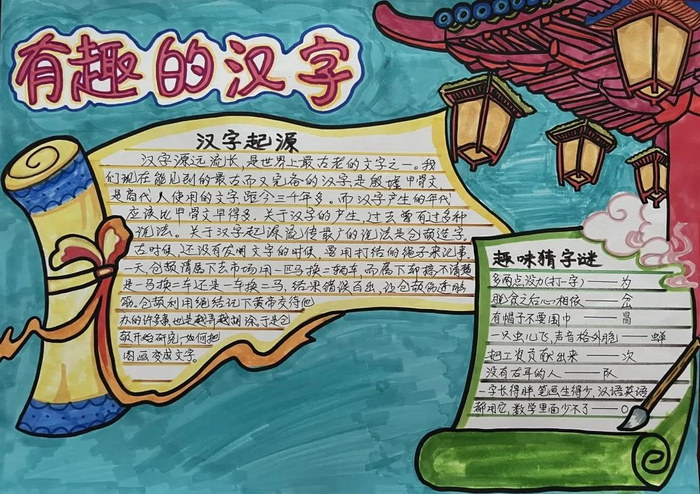 有趣的汉字
汉字起源
汉字源远流长，是世界上最古老的文字之一。我
们现在能见到的最古而又完备的汉字是殷墟甲骨文
是商代人使用的文字距今三千年多。而汉字产生的年代
应该比甲骨文早得多。关于汉字的产生，过去曾有过多种
说法。关于汉字起源流传最广的说法是仓颉造字。
古时候，还没有发明文字的时候，要用打结的绳子来记事，
一天，仓颉请属下去市场用一匹马换二辆车，而属下却搞不清楚
是一马换二车还是一车换二马，结果错误百出，让仓颉伤透脑
筋。仓颉利用绳结记下黄帝交待他
办的许多事，也是越弄越糊涂，于是仓
颉开始研究，如何把
图画变成文字。
趣味猜字谜
多两点没办(打一字)——为
饱食之后心相依——
有帽子不要围巾——冒
一只虫儿飞，声音格外脆——蝉
把工资贡献出来——次
没有右耳的人——队
一字长得胖，笔画生得少，汉语英语
都用它，数学里面少不了——O